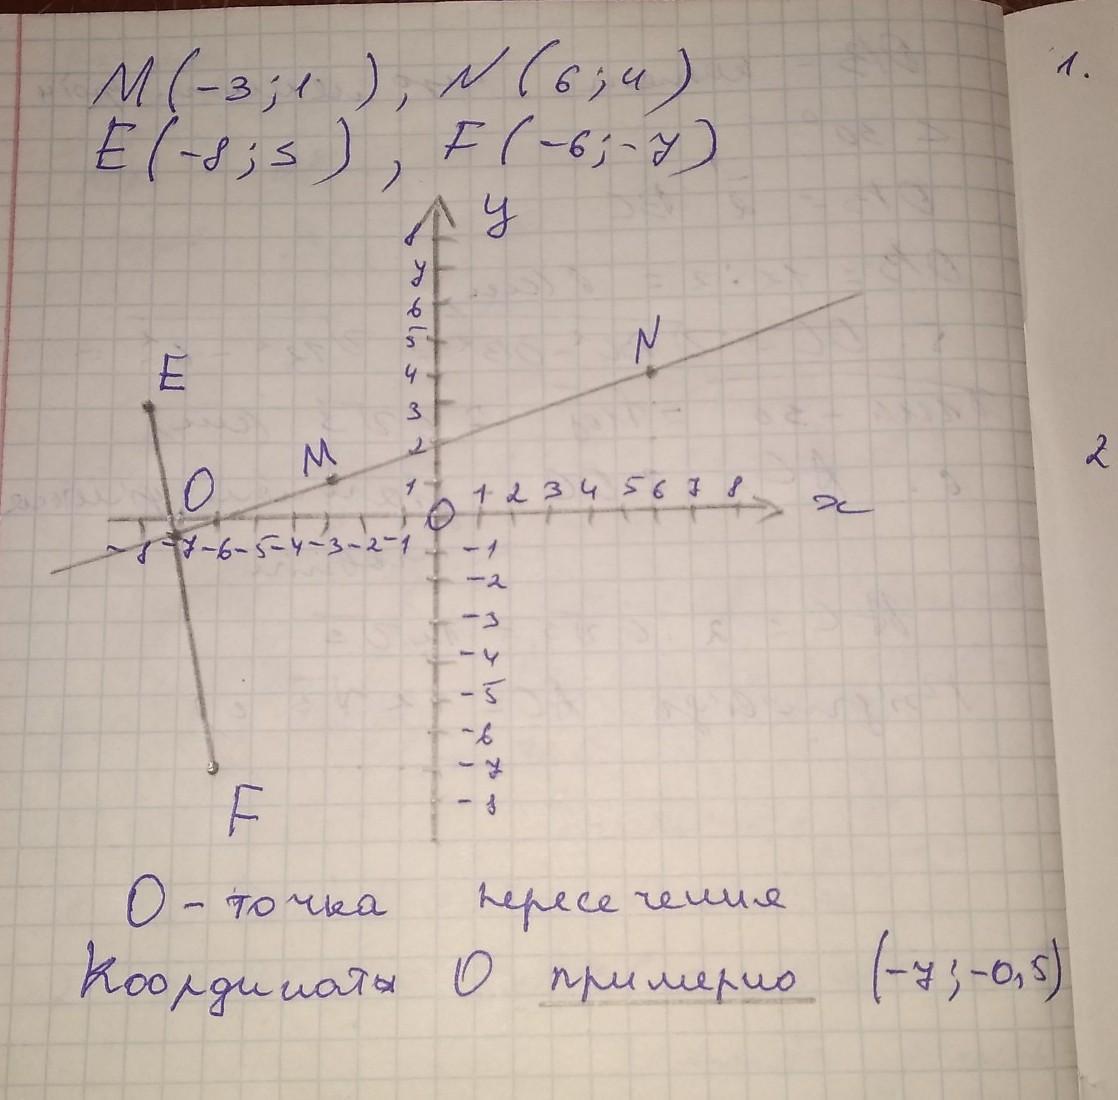 M(-3;1), N(6;4)
E(-8;5), F(-6;-7)
1.
y
8
7
6
5
4
3
2
1
E
N
M
O
O
1 2 3 4 5 6 7 8
x
-8 -7 -6 -5 -4 -3 -2 -1
-1
-2
-3
-4
-5
-6
-7
-8
2
F
O - точка пересечения
Координаты O примерно (-7;-0,5)